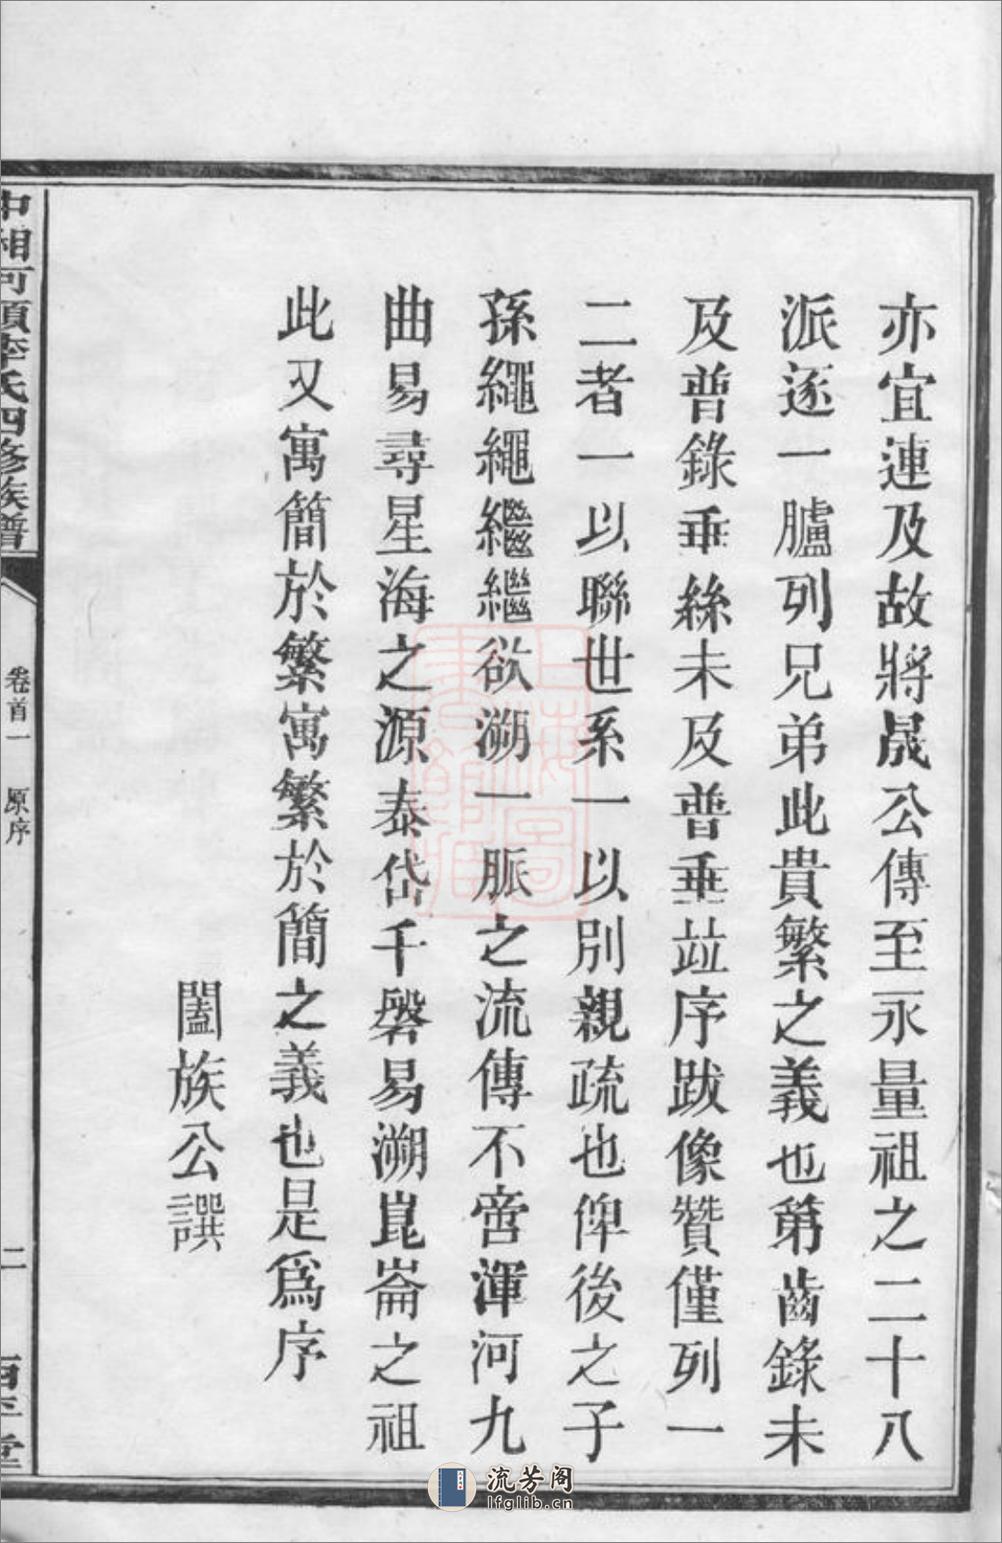 亦宜連及故將晟公傳至永量祖之二十八
派逐一臚列兄弟此貴繁之義也第齒錄未
及普錄垂絲未及普垂竝序跋像贊僅列一
二者一以聯世系一以別親疏也俾後之子
孫繩繩繼繼欲溯一脈之流傳不啻渾河九
曲易尋星海之源泰岱千磐易溯崑崙之祖
此又寓簡於繁寓繁於簡之義也是爲序
闔族公譔
中湘河頭李氏四修族譜
卷首一
原序
二
流芳阁
lfglib.cn